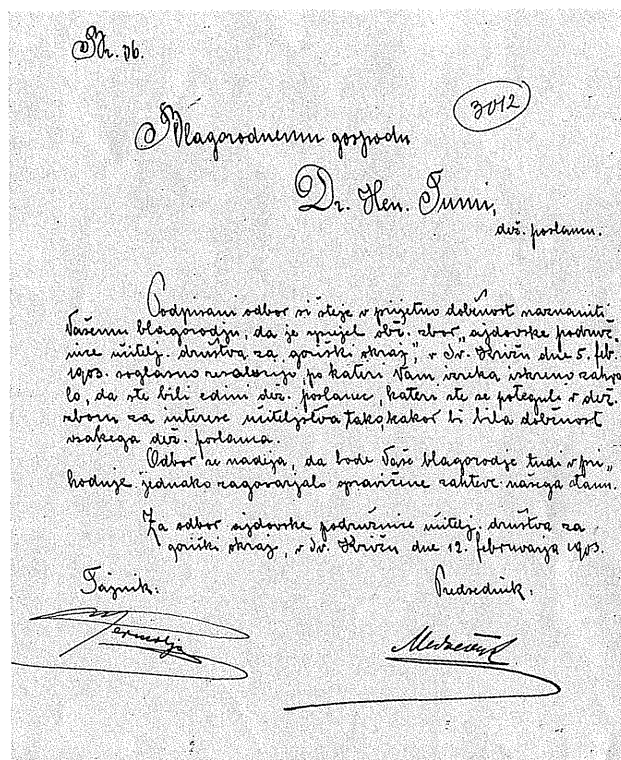 Br. 36.
3012
Blagorodnemu gospodu
Dr. Hen. Tumi,
dež. poslancu.
Podpisani odbor si šteje v prijetno dolžnost naznaniti
Vašemu blagorodju, da je sprejel obč. zbor „ajdovske podruž-
nice učitelj. društva za goriški okraj", v Sv. Križu dne 5. feb.
1903. soglasno resolucijo, po kateri Vam izreka iskreno zahva
lo, da ste bili edini dež. poslanec, kateri ste se potegnili v dež.
zboru za interese učiteljstva tako, kakor bi bila dolžnost
vsakega dež. poslanca.
Odbor se nadeja, da bode Vaše blagorodje tudi v pri„
hodnje jednako zagovarjalo pravične zahteve našega stanu.
Za odbor ajdovske podružnice učitelj. društva za
goriški okraj, v Sv. Križu dne 12. februvarja 1903.
Tajnik:
Predsednik.
Vermolja